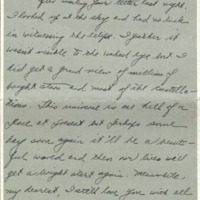 After mailing your letter last night,
I looked up at the sky and had no luck
in witnessing the eclipse. I gather it
wasn't visible to the naked eye but I
did get a grand view of millions of
bright stars and most of the constella-
tions. This universe is one hell of a
place at present but perhaps some
day soon again it'll be a beauti-
ful world and then our lives will
get a bright start again. Meanwhile,
my dearest, I still love you with all